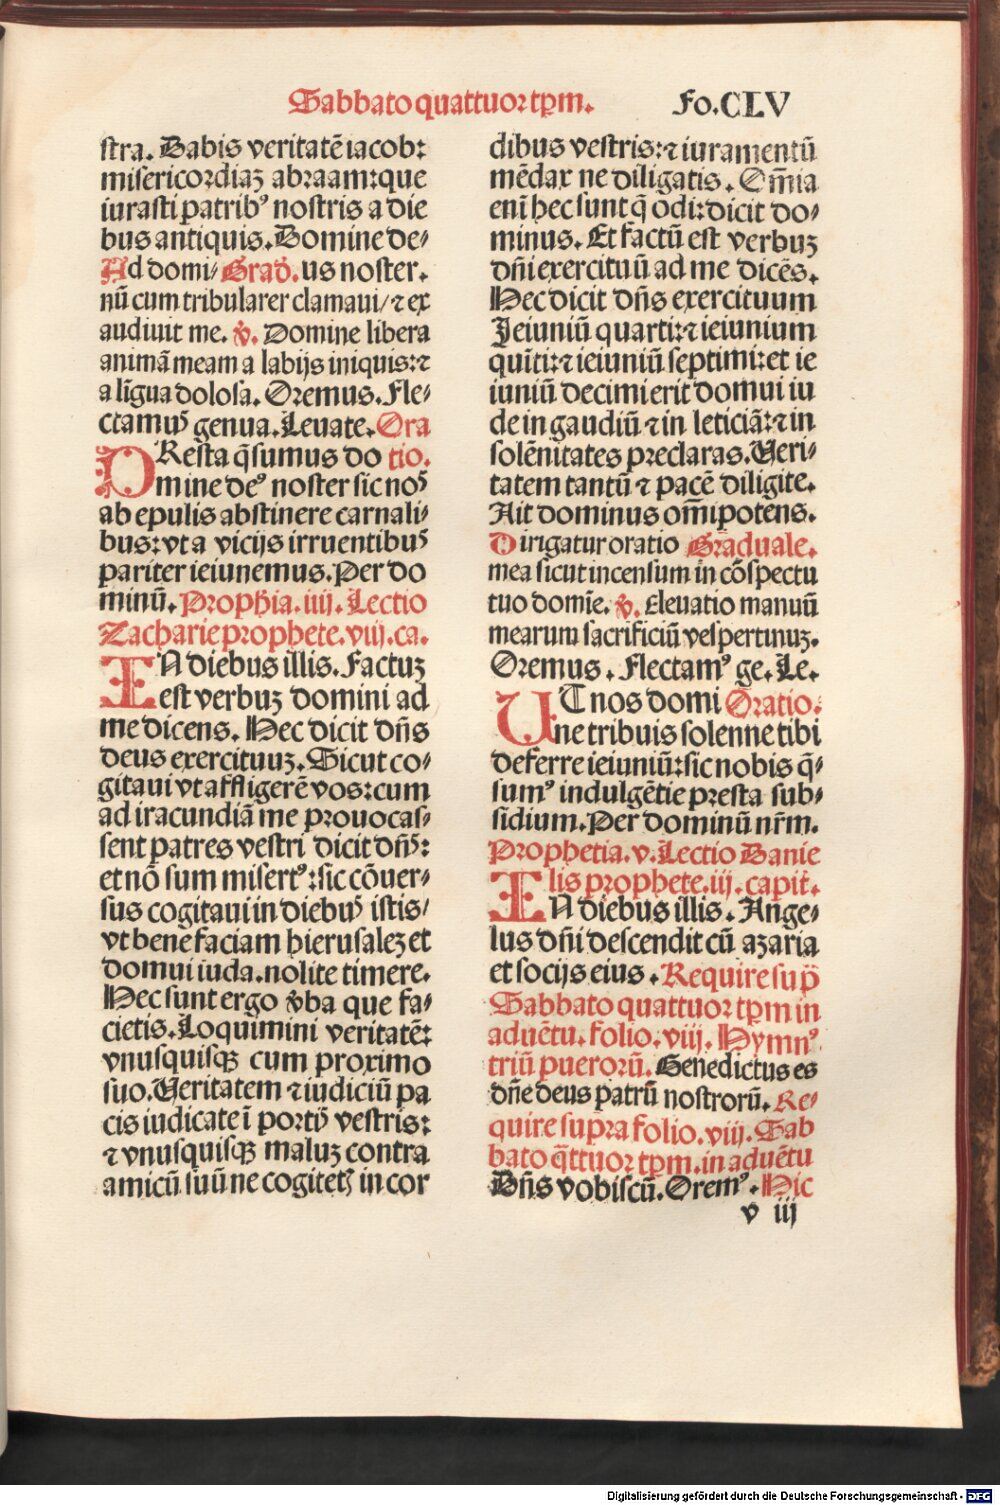 Sabbato quattuor tp̄m.
Fo.CLV
stra. Dabis veritatē iacob:
misericordiaꝫ abraam: que
iurasti patribꝰ nostris a die
bus antiquis. Domine de⸗
Ad domi⸗ Grad̄. us noster.
nū cum tribularer clamaui/ ⁊ ex
audiuit me. ℣. Domine libera
animā meam a labijs iniquis: ⁊
a līgua dolosa. Oremus. Fle⸗
ctamꝰ genua. Leuate. Ora
PResta q̄sumus do tio.
mine deꝰ noster sic nos
ab epulis abstinere carnali⸗
bus: vt a vicijs irruentibus
pariter ieiunemus. Per do
minū. Prophīa. iiij. Lectio
Zacharie prophete. viij. ca.
IN diebus illis. Factuꝫ
est verbuꝫ domini ad
me dicens. Hec dicit dn̄s
deus exercituuꝫ. Sicut co⸗
gitaui vt affligerē vos: cum
ad iracundiā me prouocas⸗
sent patres vestri dicit dn̄s:
et nō sum misertꝰ: sic cōuer⸗
sus cogitaui in diebus istis/
vt bene faciam hierusaleꝫ et
domui iuda. nolite timere.
Hec sunt ergo v̄ba que fa⸗
cietis. Loquimini veritatē:
vnusquisqꝫ cum proximo
suo. Veritatem ⁊ iudiciū pa
cis iudicate ī portis vestris:
⁊ vnusquisqꝫ maluꝫ contra
amicū suū ne cogitetis in cor
dibus vestris: ⁊ iuramentū
mēdax ne diligatis. Om̄ia
enī hec sunt q̄ odi: dicit do⸗
minus. Et factū est verbuꝫ
dn̄i exercituū ad me dicēs.
Hec dicit dn̄s exercituum
Ieiuniū quarti: ⁊ ieiunium
quīti: ⁊ ieiuniū septimi: et ie
iuniū decimi erit domui iu
de in gaudiū ⁊ in leticiā: ⁊ in
solēnitates preclaras. Veri⸗
tatem tantū ⁊ pacē diligite.
Ait dominus om̄ipotens.
Dirigatur oratio Graduale.
mea sicut incensum in cōspectu
tuo domīe. ℣. Eleuatio manuū
mearum sacrificiū vespertinuꝫ.
Oremus. Flectamꝰ ge. Le.
UT nos domi Oratio.
ne tribuis solenne tibi
deferre ieiuniū: sic nobis q̄⸗
sumꝰ indulgētie presta sub⸗
sidium. Per dominū nr̄m.
Prophetia. v. Lectio Danie
lis prophete. iij. capit̄.
IN diebus illis. Ange⸗
lus dn̄i descendit cū azaria
et socijs eius. Require sup̄
Sabbato quattuor tp̄m in
aduētu. folio. viij. Hymnꝰ
triū puerorū. Benedictus es
dn̄e deus patrū nostrorū. Re⸗
quire supra folio. viij. Sab
bato q̄ttuor tp̄m. in aduētu
Dn̄s vobiscū. Oremꝰ. Hic
v iij
Digitalisierung gefördert durch die Deutsche Forschungsgemeinschaft - DFG